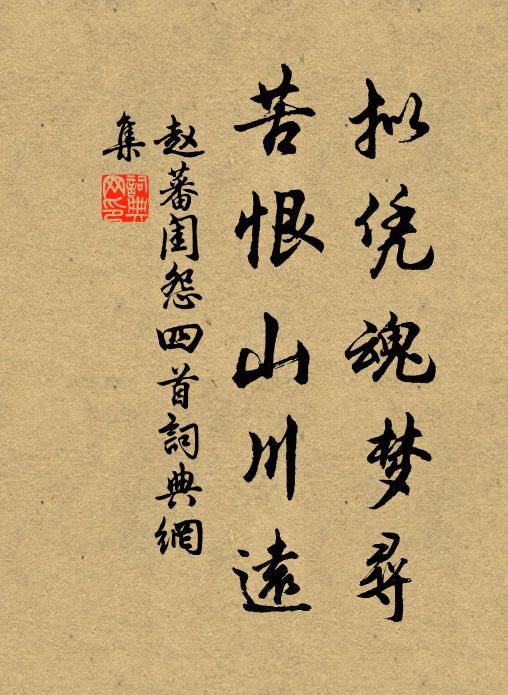 拟凭魂梦寻
苦恨山川遠
赵蕃闺怨四首詞典網
集
詞典網印